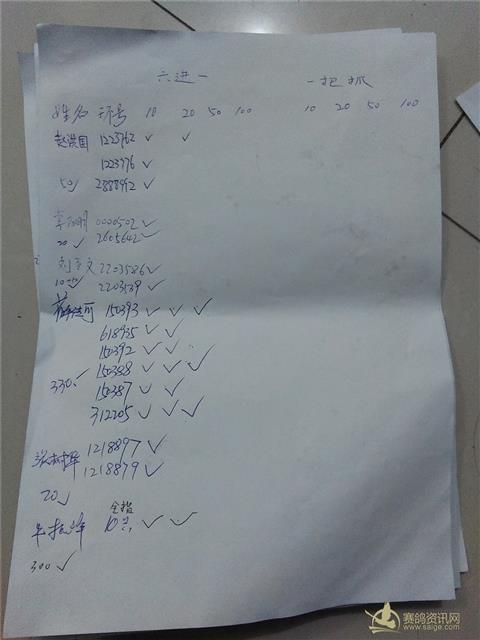 六进一 一把抓
姓名 环号 10 20 50 100 10 20 50 100
赵洪国 1223762 ✓ ✓
1223776 ✓
50✓ 2888992 ✓
0000502 ✓
20 ✓ 2605642 ✓
刘 文 2203586 ✓
10 2203589 ✓
150393 ✓ ✓ ✓
618935 ✓ ✓
150392 ✓ ✓
330✓ 150388 ✓ ✓ ✓
150387 ✓ ✓
312205 ✓ ✓ ✓
1218897 ✓
1218879 ✓
20 ✓
全指
10 ✓ ✓
300 ✓
赛鸽资讯网
www.saige.com